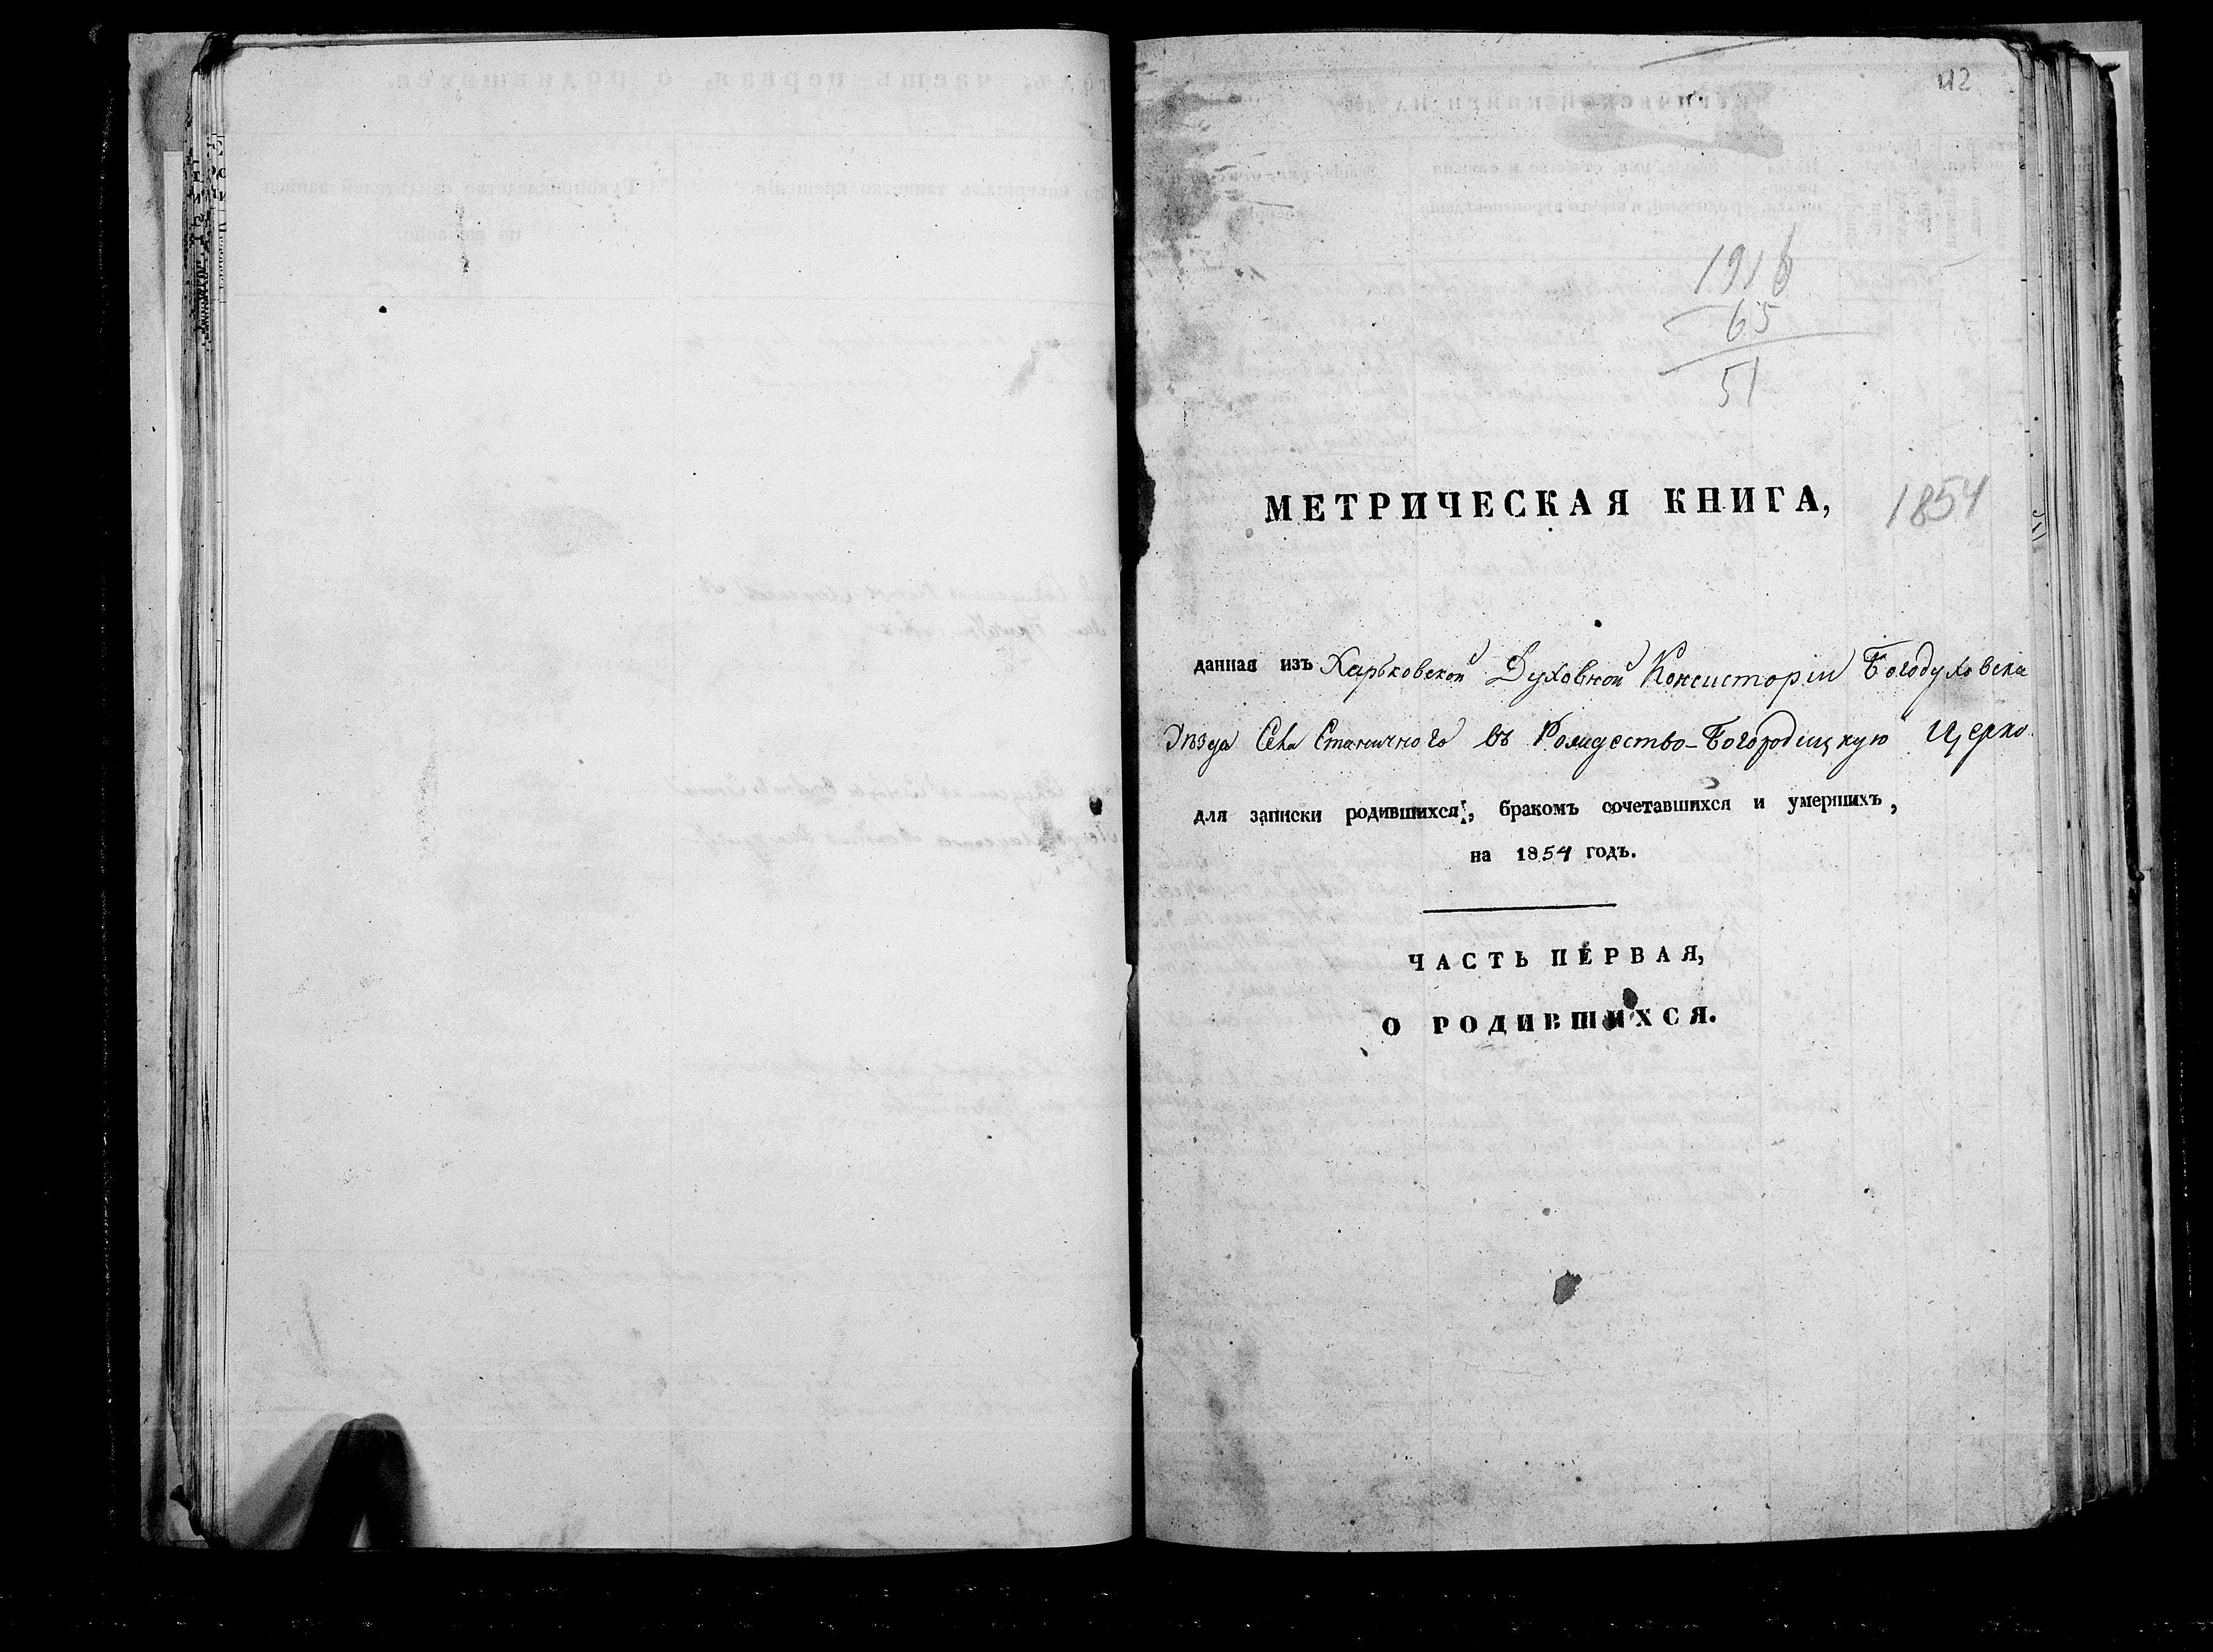 42
1916
65
51
МЕТРИЧЕСКАЯ КНИГА, 1854
данная изъ Харьковской Духовной Консисторіи Богодуховска
Уѣзда Села Станичного въ Рождество-Богородицкую Церко
для записки родившихся, бракомъ сочетавшихся и умершихъ,
на 1854 годъ.
ЧАСТЬ ПЕРВАЯ,
О РОДИВШИХСЯ.